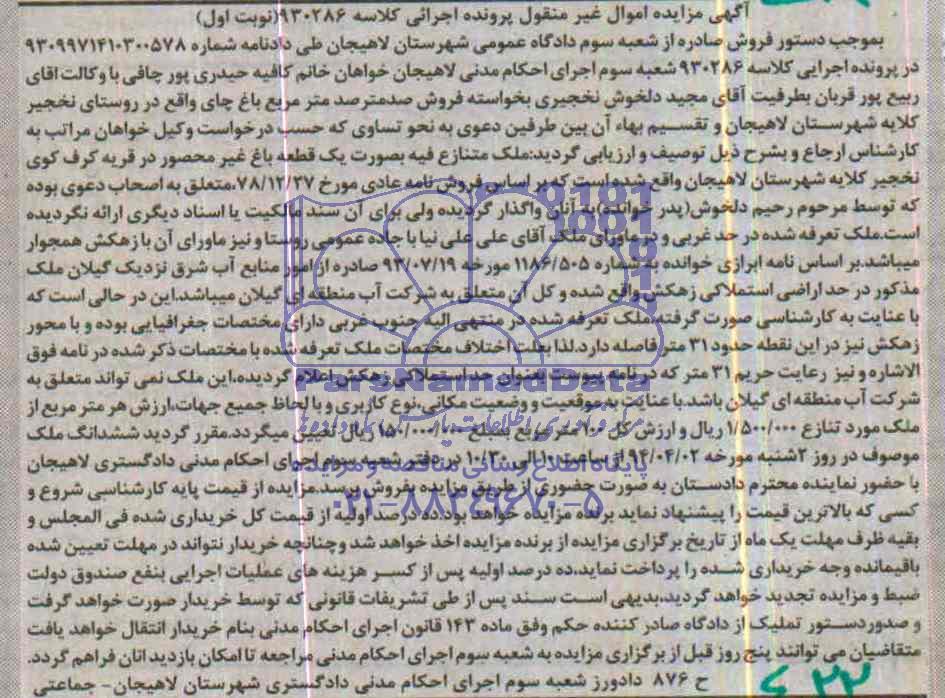 آگهی مزایده اموال غیر منقول پرونده اجرائی کلاسه ۹۳۰۲۸۶(نوبت اول)
بموجب دستور فروش صادره از شعبه سوم دادگاه عمومی شهرستان لاهیجان طی دادنامه شماره ۹۳۰۹۹۷۱۴۱۰۳۰۰۵۷۸
در پرونده اجرایی کلاسه ۹۳۰۲۸۶ شعبه سوم اجرای احکام مدنی لاهیجان خواهان خانم کافیه حیدری پور چافی با وکالت اقای
ربیع پور قربان بطرفیت آقای مجید دلخوش نخجیری بخواسته فروش صدمترصد متر مربع باغ چای واقع در روستای نخجیر
کلایه شهرستان لاهیجان و تقسیم بهاء آن بین طرفین دعوی به نحو تساوی که حسب درخواست وکیل خواهان مراتب به
کارشناس ارجاع و بشرح ذیل توصیف و ارزیابی گردید:ملک متنازع فیه بصورت یک قطعه باغ غیر محصور در قریه کرف کوی
نخجیر کلایه شهرستان لاهیجان واقع شده است که بر اساس فروش نامه عادی مورخ ۷۸/۱۲/۲۷،متعلق به اصحاب دعوی بوده
که توسط مرحوم رحیم دلخوش(پدر خوانده)به آنان واگذار گردیده ولی برای آن سند مالکیت یا اسناد دیگری ارائه نگردیده
است.ملک تعرفه شده در حد غربی و در ماورای ملک آقای علی علی نیا با جاده عمومی روستا و نیز ماورای آن با زهکش همجوار
میباشد.بر اساس نامه ابرازی خوانده به شماره ۱۱۸۶/۵۰۵ مورخه ۹۳/۰۷/۱۹ صادره از امور منابع آب شرق نزدیک گیلان ملک
مذکور در حد اراضی استملاکی زهکش واقع شده و کل آن متعلق به شرکت آب منطقه ای گیلان میباشد.این در حالی است که
با عنایت به کارشناسی صورت گرفته،ملک تعرفه شده در منتهی الیه جنوب غربی دارای مختصات جغرافیایی بوده و با محور
زهکش نیز در این نقطه حدود ۳۱ متر فاصله دارد.لذا بعلت اختلاف مختصات ملک تعرفه شده با مختصات ذکر شده در نامه فوق
الاشاره و نیز رعایت حریم ۳۱ متر که در نامه پیوست بعنوان حد استملاکی زهکش اعلام گردیده،این ملک نمی تواند متعلق به
شرکت آب منطقه ای گیلان باشد.با عنایت به موقعیت و وضعیت مکانی،نوع کاربری و با لحاظ جمیع جهات،ارزش هر متر مربع از
ملک مورد تنازع ۱/۵۰۰/۰۰۰ ریال و ارزش کل ۱۰۰ متر مربع بمبلغ ۱۵۰/۰۰۰/۰۰۰ ریال تعیین میگردد.مقرر گردید ششدانگ ملک
موصوف در روز ۲شنبه مورخه ۹۴/۰۴/۰۲ از ساعت ۱۰ الی ۱۰/۳۰ در دفتر شعبه سوم اجرای احکام مدنی دادگستری لاهیجان
با حضور نماینده محترم دادستان به صورت حضوری از طریق مزایده بفروش برسد.مزایده از قیمت پایه کارشناسی شروع و
کسی که بالاترین قیمت را پیشنهاد نماید برنده مزایده خواهد بود.ده درصد اولیه از قیمت کل خریداری شده فی المجلس و
بقیه ظرف مهلت یک ماه از تاریخ برگزاری مزایده از برنده مزایده اخذ خواهد شد وچنانچه خریدار نتواند در مهلت تعیین شده
باقیمانده وجه خریداری شده را پرداخت نماید،ده درصد اولیه پس از کسر هزینه های عملیات اجرایی بنفع صندوق دولت
ضبط و مزایده تجدید خواهد گردید.بدیهی است سند پس از طی تشریفات قانونی که توسط خریدار صورت خواهد گرفت
و صدوردستور تملیک از دادگاه صادر کننده حکم وفق ماده ۱۴۳ قانون اجرای احکام مدنی بنام خریدار انتقال خواهد یافت
متقاضیان می توانند پنج روز قبل از برگزاری مزایده به شعبه سوم اجرای احکام مدنی مراجعه تا امکان بازدید انان فراهم گردد.
ح ۸۷۶ دادورز شعبه سوم اجرای احکام مدنی دادگستری شهرستان لاهیجان- جماعتی
ParsNamadData
پایگاه اطلاع رسانی مناقصه و مزایده
۰۲۱-۸۸۳۴۹۶۷۰-۵